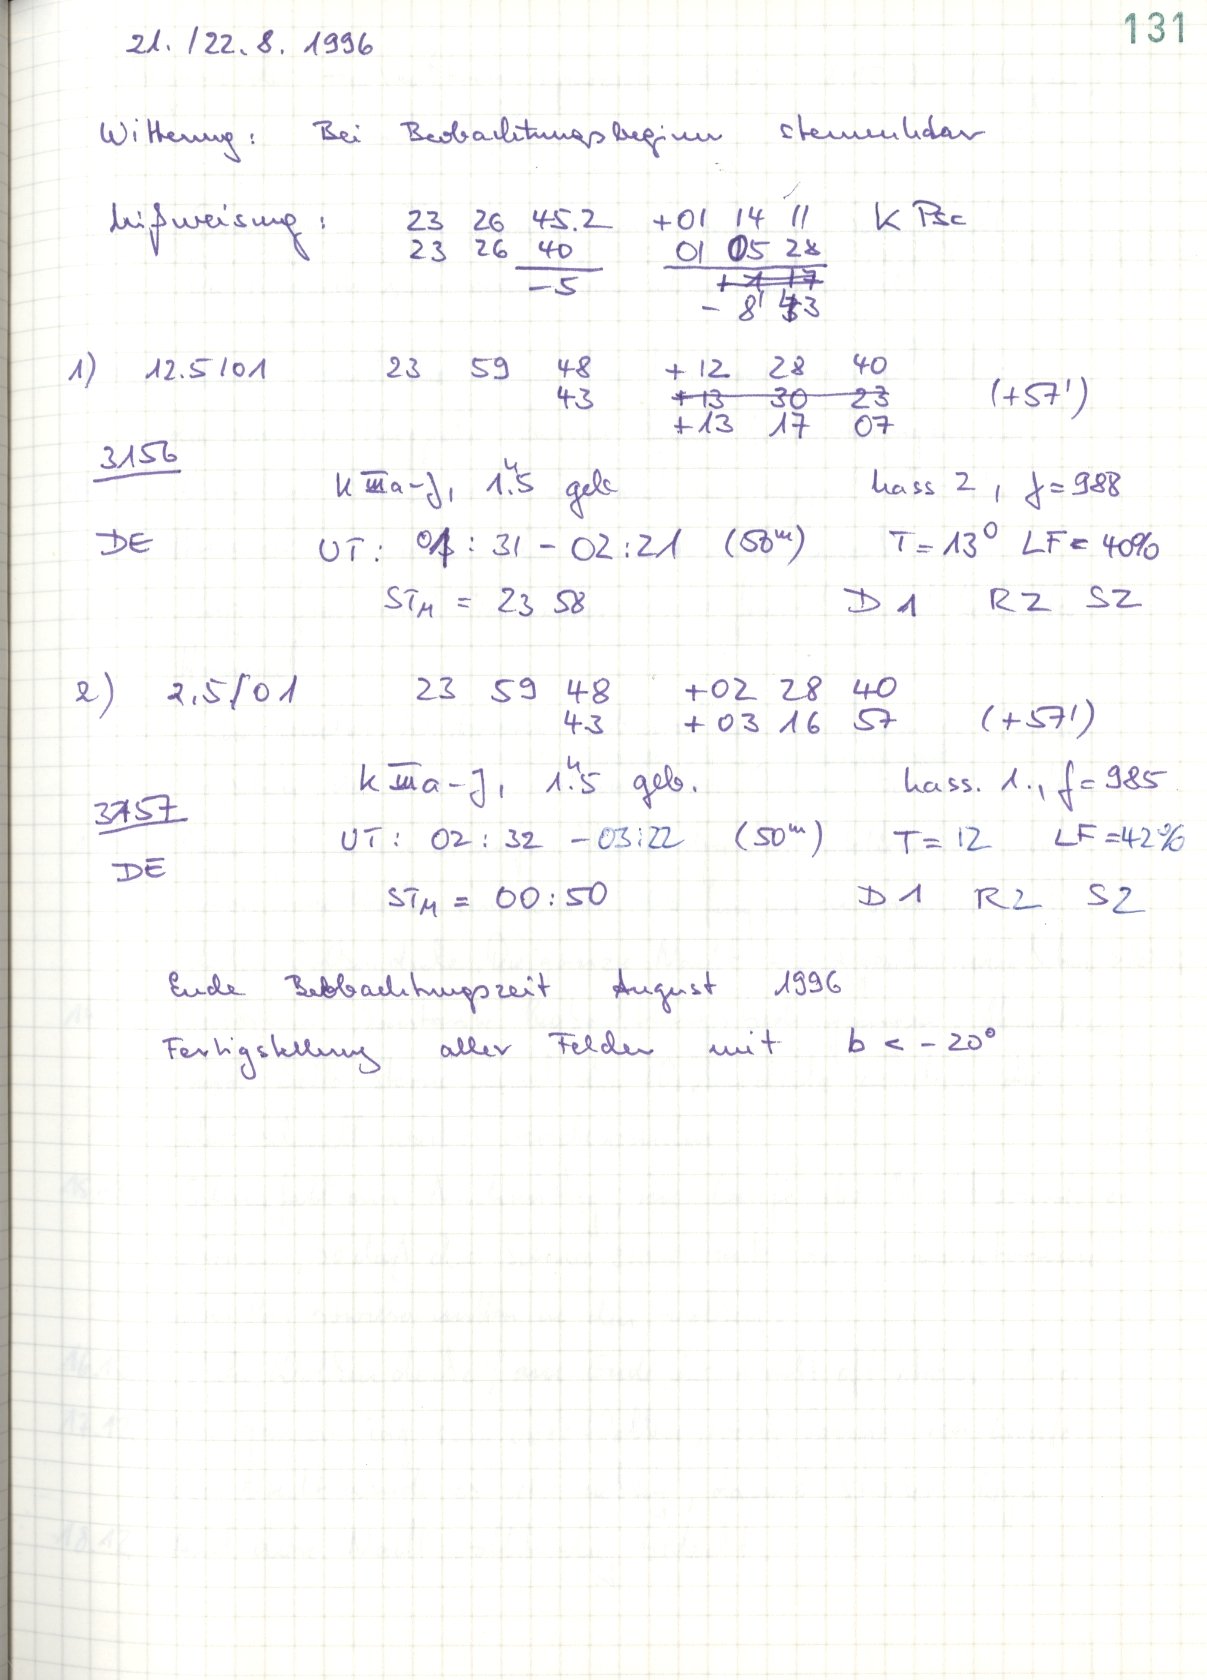 131
21./22.8. 1996
Witterung: Bei Beobachtungsbeginn sternenklar
Mißweisung: 23 26 45.2 +01 14 11 K Psc
23 26 40 01 05 28
-5 + 1 17
- 8' 43
1) 12.5/01 23 59 48 +12 28 40
43 +13 30 23 (+57')
+13 17 07
3156
K IIIa-J, 1.ʰ5 geb Kass 2, f=988
DE UT: 01:31 - 02:21 (50ᵐ) T=13° LF=40%
STM = 23 58 D1 R2 S2
2) 2.5/01 23 59 48 +02 28 40
43 +03 16 57 (+57')
K IIIa-J, 1.ʰ5 geb. Kass. 1., f=985
3157
UT: 02:32 - 03:22 (50ᵐ) T=12 LF=42%
DE
STM = 00:50 D1 R2 S2
Ende Beobachtungszeit August 1996
Fertigstellung aller Felder mit b < -20°